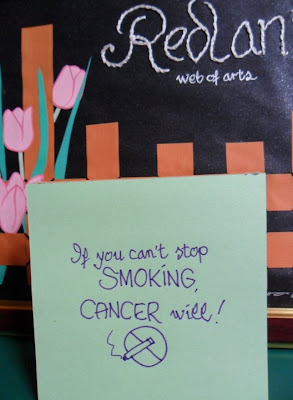 RedLan
web of arts
If you can't stop
SMOKING,
CANCER will!